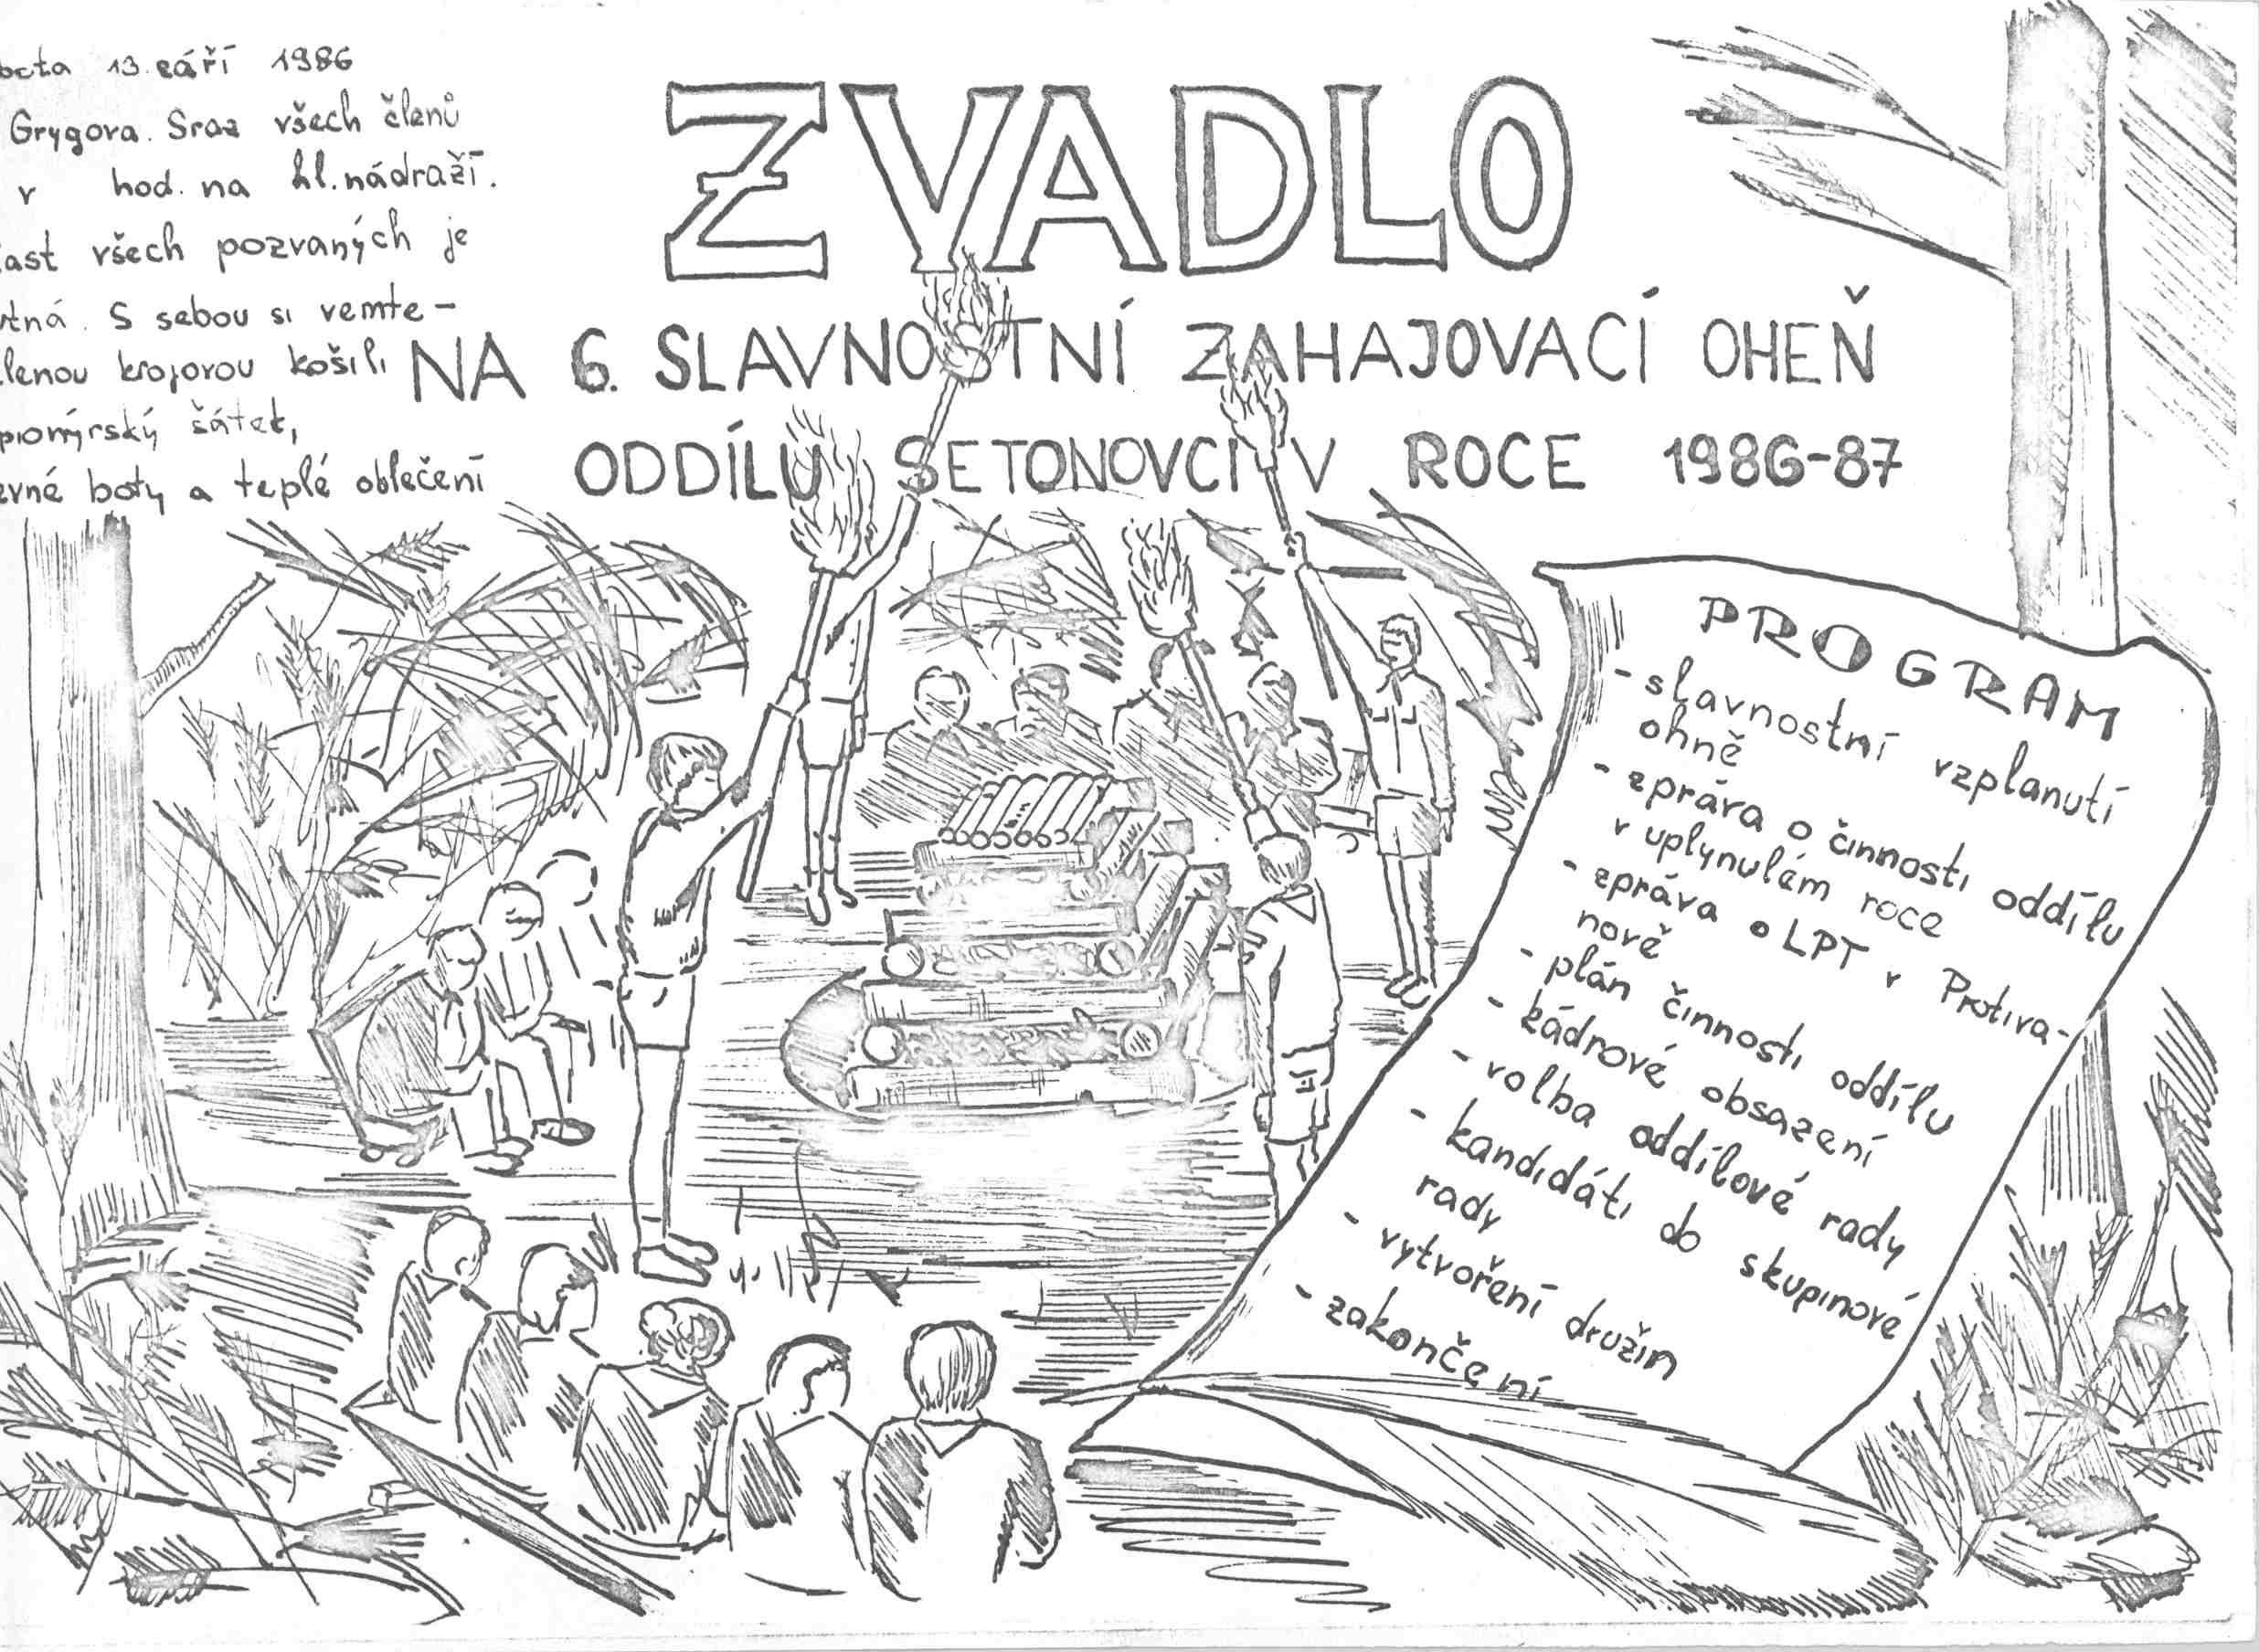 13. září 1986
Grygora. Sraz všech členů
v hod. na hl. nádraží.
všech pozvaných je
S sebou si vemte -
krojovou košili
pionýrský šátek,
boty a teplé oblečení
ZVADLO
NA 6. SLAVNOSTNÍ ZAHAJOVACÍ OHEŇ
ODDÍLU SETONOVCI V ROCE 1986-87
PROGRAM
- slavnostní vzplanutí
ohně
- zpráva o činnosti oddílu
v uplynulém roce
- zpráva o LPT v Protiva-
nově
- plán činnosti oddílu
- kádrové obsazení
- volba oddílové rady
- kandidáti do skupinové
rady
- vytvoření družin
- zakončení